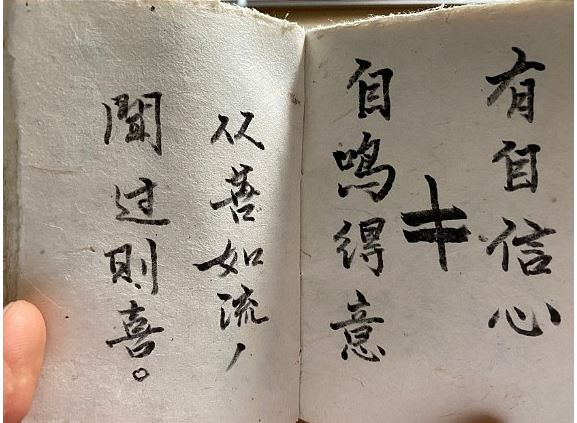 有自信心
≠
自鸣得意
从善如流，
闻过则喜。